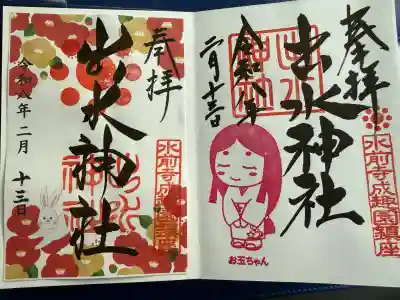 奉拝
水前寺成趣園鎮座
出水神社
出水神社
令和八年二月
十三日
奉拝
水前寺成趣園鎮座
出水神社
出水神社
令和八年
二月十三日
お玉ちゃん